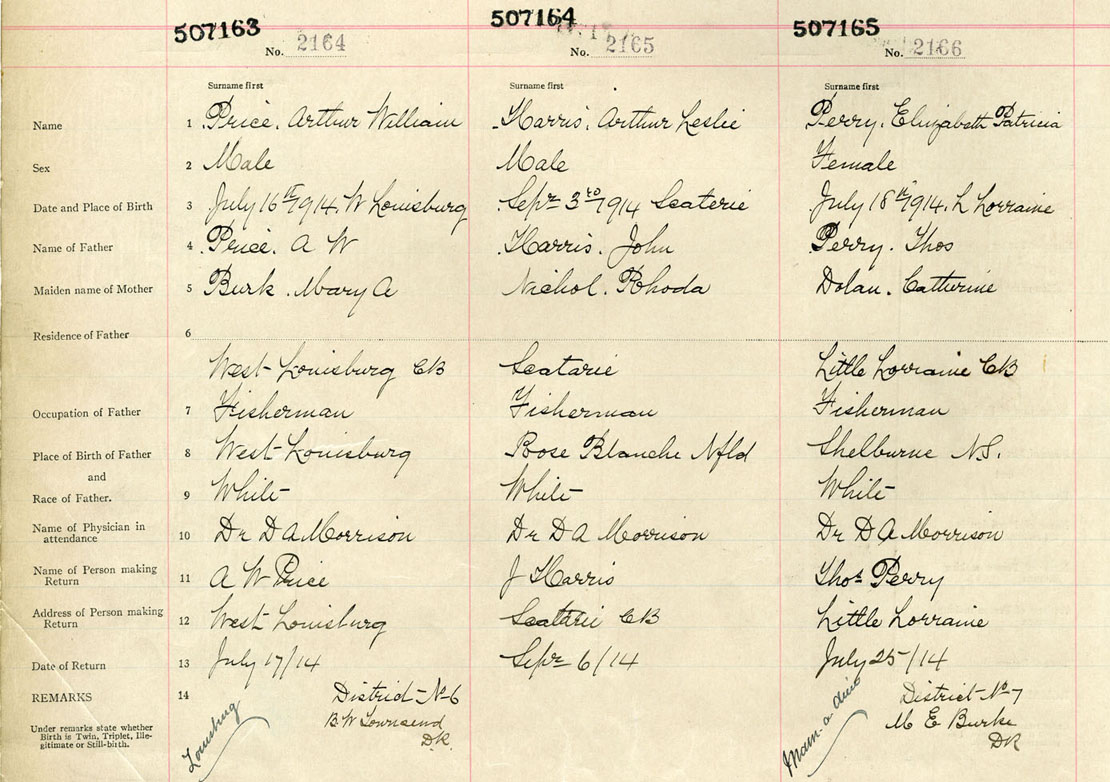 507163 507164 507165
No. 2164 No. 2165 No. 2166
Surname first Surname first Surname first
Name 1 Price. Arthur William Harris. Arthur Leslie Perry. Elizabeth Patricia
Sex 2 Male Male Female
Date and Place of Birth 3 July 16th 1914. W Louisburg Sepr 3rd 1914 Scaterie July 18th 1914. L Lorraine
Name of Father 4 Price. A W Harris. John Perry. Thos
Maiden name of Mother 5 Burk. Mary A Nichol. Rhoda Dolan. Catherine
Residence of Father 6
West Louisburg CB Scatarie Little Lorraine CB
Occupation of Father 7 Fisherman Fisherman Fisherman
Place of Birth of Father 8 West Louisburg Rose Blanche Nfld Shelburne NS.
and
Race of Father. 9 White White White
Name of Physician in
attendance 10 Dr D A Morrison Dr D A Morrison Dr D A Morrison
Name of Person making
Return 11 A W Price J Harris Thos Perry
Address of Person making
Return 12 West Louisburg Scatarie CB Little Lorraine
Date of Return 13 July 17/14 Sepr 6/14 July 25/14
REMARKS 14 District No 6 District No 7
B W Townsend M E Burke
DR. DR
Louisburg Main-a-dieu
Under remarks state whether
Birth is Twin, Triplet, Ille-
gitimate or Still-birth.